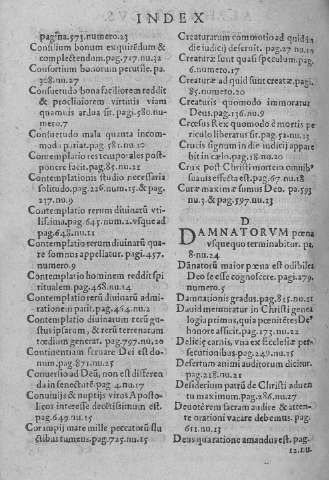 INDEX
pagina.573.numero.23
Consilium bonum exquirendum &
complectendum.pag.717.nu.32
Consortium bonorum perutile.pa.
368.nu.27
Consuetudo bona faciliorem reddit
& procliuiorem virtutis viam
quamuis ardua sit.pagi.580.nu-
mero.7
Consuetudo mala quanta incom-
moda pariat.pag.581.nu.10
Contemplatio res temporales post-
ponere facit.pag.85.nu.21
Contemplationis studio necessaria
solitudo.pag.226.num.15.& pag.
237.nu.9
Contemplatio rerum diuinarũ vti-
lissima.pag.645.num.2.vsque ad
pag.648.nu.11
Contemplatio rerum diuinarũ qua-
re somnus appellatur.pagi.457.
numero.9
Contemplatio hominem reddit spi
ritualem.pag.468.nu.14
Contemplatio rerũ diuinarũ admi-
rationem parit.pag.464.nu.2
Contemplatio diuinarum rerũ gu-
stus ipsarum, & rerũ terrenarum
tœdium generat.pag.797.nu,20
Continentiam seruare Dei est do-
num.pag.871.nu.25
Conuersio ad Deũ, non est differen
da in senectutẽ.pag.4.nu.17
Conuiuijs & nuptijs viros Aposto-
licos interesse decẽtissimum est.
pag.649.nu.15
Cor impij mare mille peccatorũ flu
ctibus tumens.pag.725.nu.15
Creaturarum commotio ad quid in
die iudicij deseruit.pag.27 nu.19
Creaturæ sunt quasi speculum.pag.
6.numero.17
Creaturæ ad quid sunt creatæ.pagi.
85.numero.20
Creaturis quomodo immoratur
Deus.pag.136.nu.9
Crescens Rex quomodo è mortis pe-
riculo liberatus sit.pag.52.nu.13
Crucis signum in die iudicij appare
bit in cœlo.pag.18.nu.20
Crux post Christi mortem consola-
suauis effecta est.pag.67.nu.18
Curæ maximæ sumus Deo.pa.593
nu.3.& pag.597.nu.13
D
DAMNATORVM pœna
vsque quo terminabitur.pa.
8.nu.24
Dãnatorũ maior pœna est odibiles
Deo se esse cognoscere.pagi.279.
numero.5
Damnationis gradus.pag.815.nu.21
Dauid memoratur in Christi gene-
logia primus,quia pœnitẽtes De⁹
honore afficit.pag.173.nu.22
Delitiæ carnis, vna ex Ecclesiæ per-
secutionibus.pag.249.nu.15
Desertum animi auditorum dicitur.
pag.218.nu.21
Desiderium patrũ de Christi aduen
tu maximum.pag.286.nu.27
Deuotè rem sacram audire & atten-
te orationi vacare debemus.pag.
611.nu.13
Deus qua ratione amandus est.pag.
12.nu.